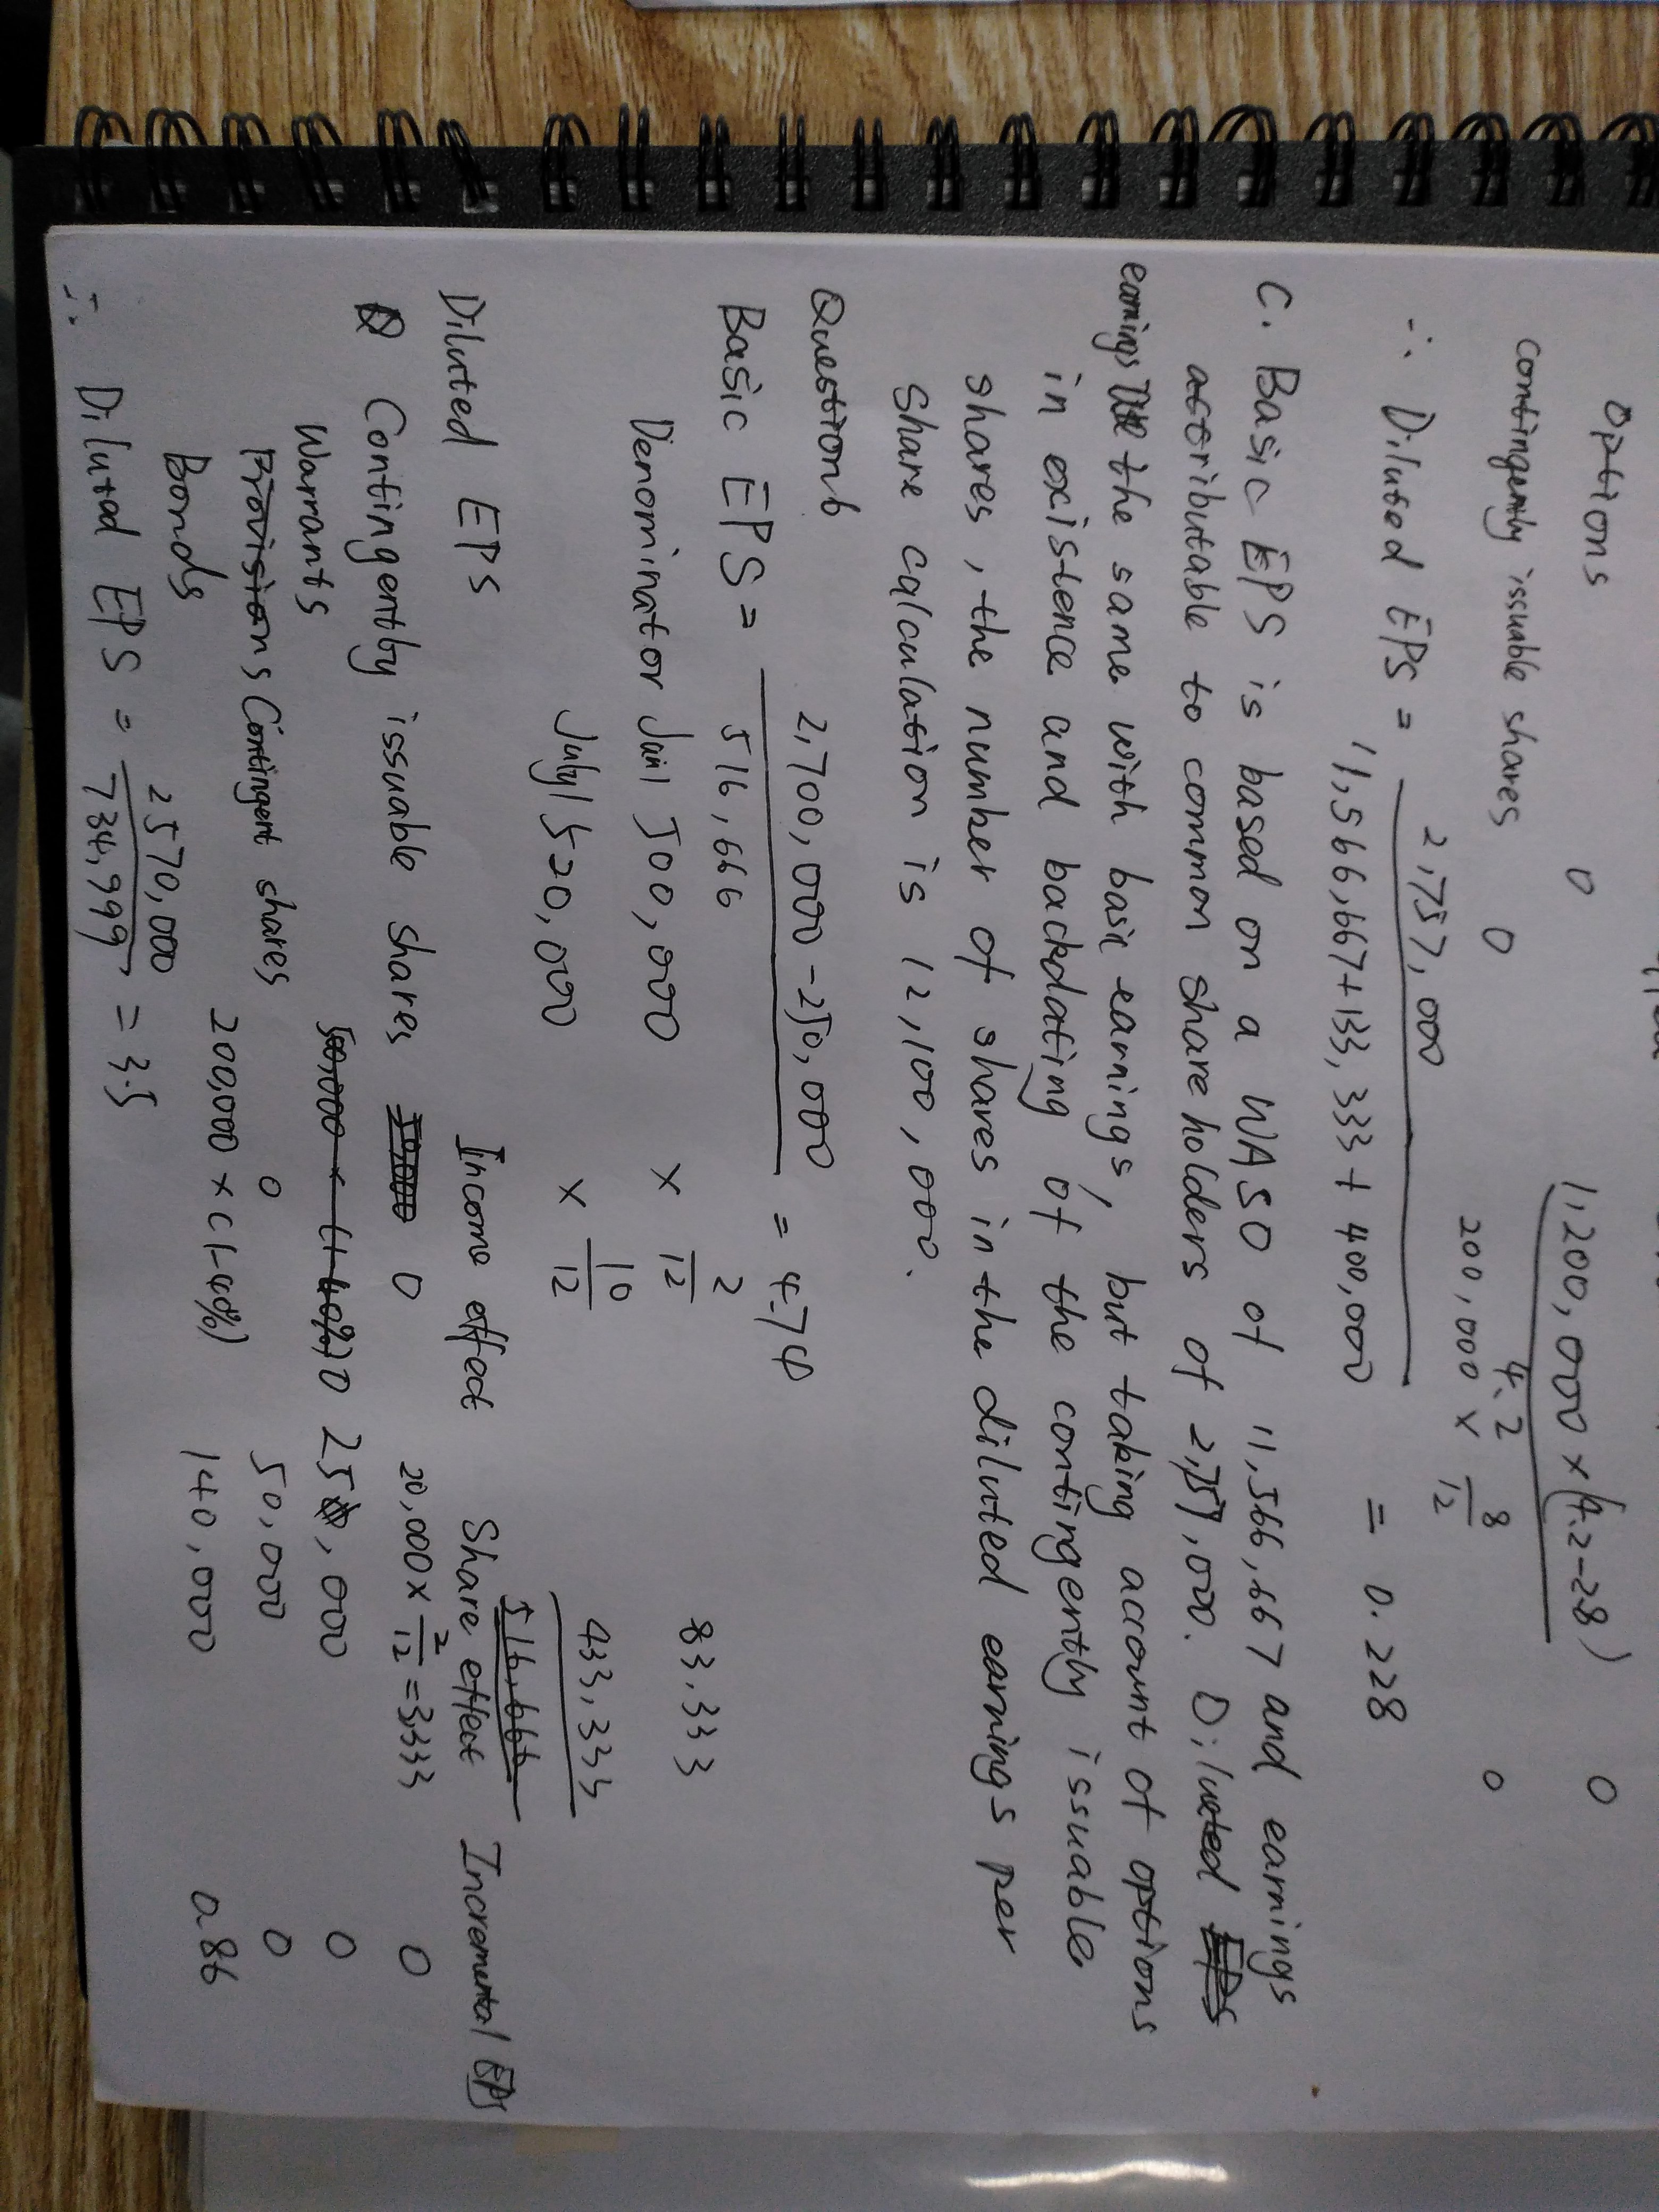 Options 0 1,200,000 × (4.2-2.8) 0
4.2
contingently issuable shares 0 200,000 × 8/12 0
∴ Diluted EPS = 2,757,000 / 11,566,667+133,333+400,000 = 0.228
C. Basic EPS is based on a WASO of 11,566,667 and earnings
attributable to common share holders of 2,757,000. Diluted EPS
earnings the same with basic earnings, but taking account of options
in existence and backdating of the contingently issuable
shares, the number of shares in the diluted earnings per
share calculation is 12,100,000.
Question 6
Basic EPS = 2,700,000 - 250,000 / 516,666 = 4.74
Denominator Jan 1 500,000 × 2/12 83,333
July 1 520,000 × 10/12 433,333
516,666
Diluted EPS Income effect Share effect Incremental EPS
Contingently issuable shares 50,000 0 20,000 × 2/12 = 3333 0
Warrants 500,000 × (1-40%) 0 25,000 0
Provisions Contingent shares 0 50,000 0
Bonds 200,000 × (1-40%) 140,000 0.86
∴ Diluted EPS = 2570,000 / 734,999 = 3.5